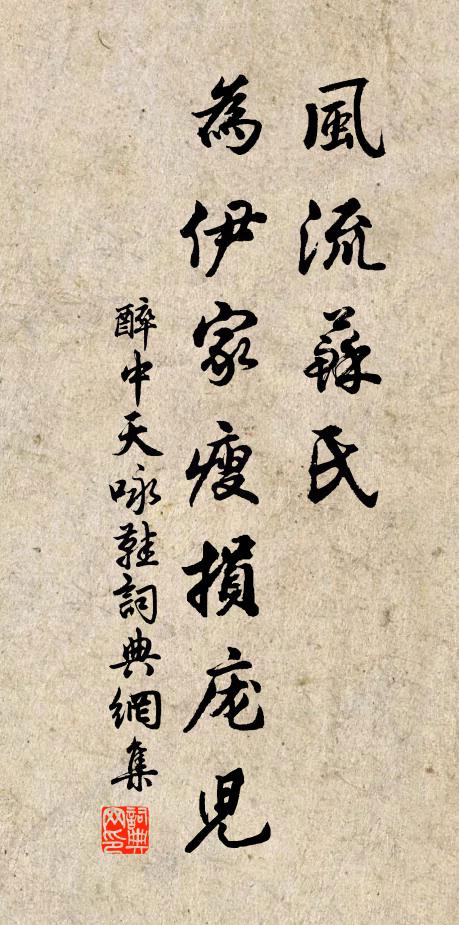 風流蘇氏
為伊家瘦損庞児
醉中天咏鞋詞典網集
詞典网印